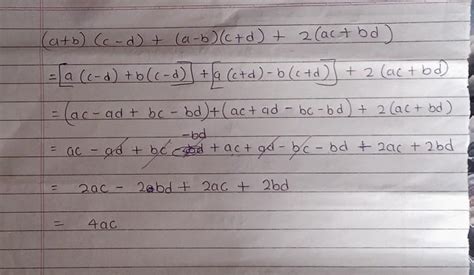 (a+b) (c-d) + (a-b)(c+d) + 2(ac+bd)
=[a (c-d) +b(c-d)] +[a (c+d) -b(c+d)] + 2 (ac+bd)
=(ac -ad + bc - bd)+(ac +ad -bc -bd) + 2(ac+bd)
-bd
= ac - ad + bc + ac + ad - bc - bd + 2ac + 2bd
= 2ac - 2bd + 2ac + 2bd
= 4ac